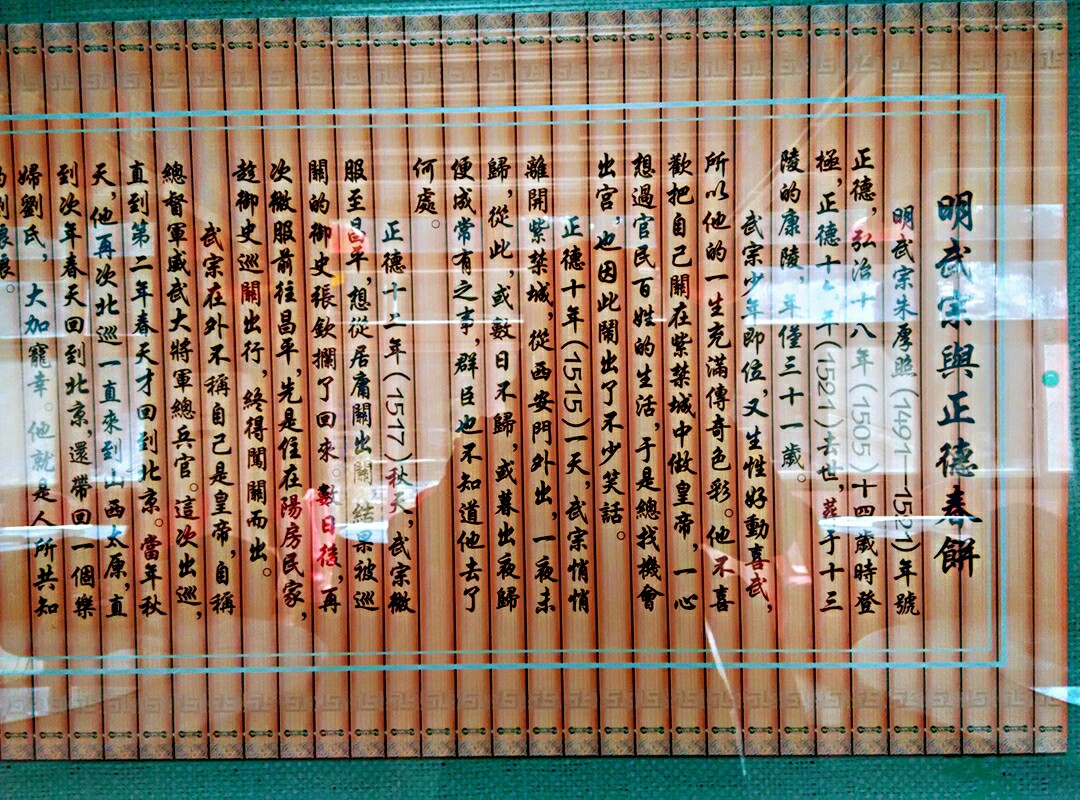 明武宗與正德春餅
明武宗朱厚照(1491—1521)年號
正德，弘治十八年(1505)十四歲時登
極，正德十六年(1521)去世，葬于十三
陵的康陵，年僅三十一歲。
武宗少年即位，又生性好動喜武，
所以他的一生充滿傳奇色彩。他不喜
歡把自己關在紫禁城中做皇帝，一心
想過官民百姓的生活，于是總找機會
出宮，也因此鬧出了不少笑話。
正德十年(1515)一天，武宗悄悄
離開紫禁城，從西安門外出，一夜未
歸，從此，或數日不歸，或暮出夜歸
便成常有之事，群臣也不知道他去了
何處。
正德十二年(1517)秋天，武宗微
服至昌平，想從居庸關出關，結果被巡
關的御史張欽攔了回來。數日後，再
次微服前往昌平，先是住在陽房民家，
趁御史巡關出行，終得闖關而出。
武宗在外不稱自己是皇帝，自稱
總督軍威武大將軍總兵官。這次出巡，
直到第二年春天才回到北京。當年秋
天，他再次北巡一直來到山西太原，直
到次年春天回到北京，還帶回一個樂
婦劉氏，大加寵幸。他就是人所共知
的劉娘娘。